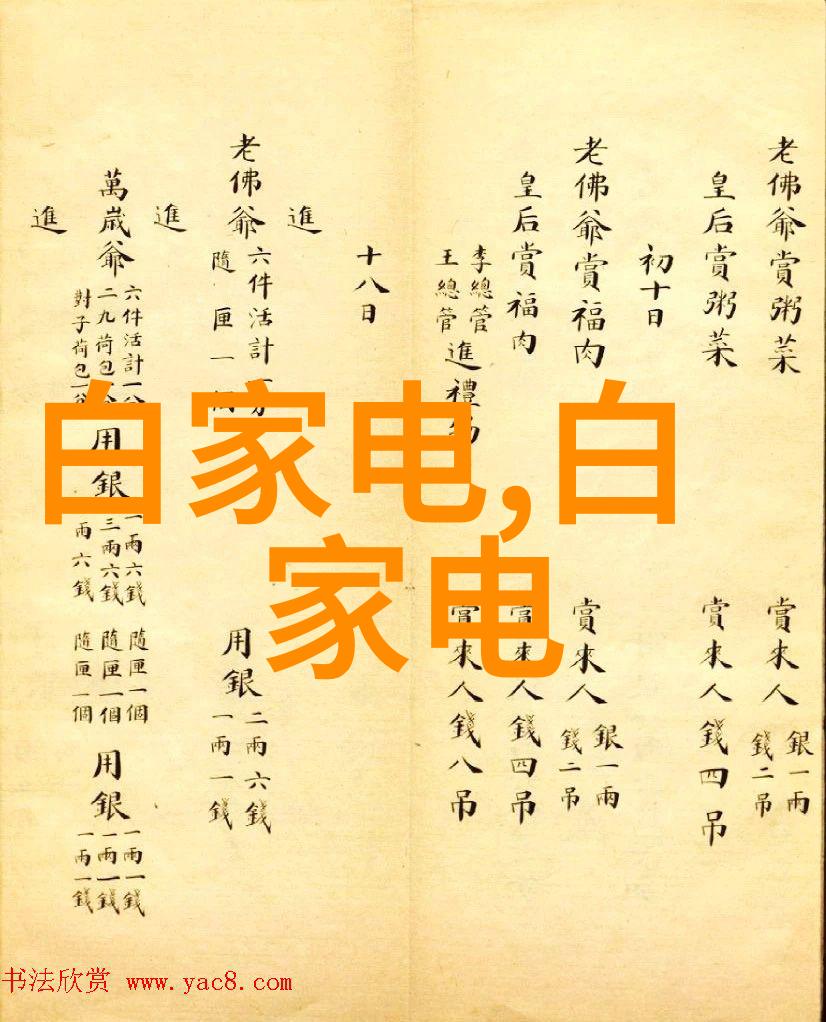 老佛爺賞粥菜 賞來人 銀一兩 錢二吊
皇后賞粥菜 賞來人錢四吊
初十日
老佛爺賞福肉 賞來人 銀一兩 錢二吊
皇后賞福肉 賞來人錢四吊
李總管 王總管 進禮物 賞來人錢八吊
十八日
進
老佛爺 六件活計一分 隨匣一個 用銀 二兩六錢 一兩一錢
進
萬歲爺 六件活計一分 二九荷包一分 對子荷包一分 用銀 一兩六錢 三兩六錢 一兩六錢 隨匣一個 隨匣一個 隨匣一個 用銀 一兩一錢 一兩一錢 一兩一錢
進
白家电,白
家电
书法欣赏 www.yac8.com